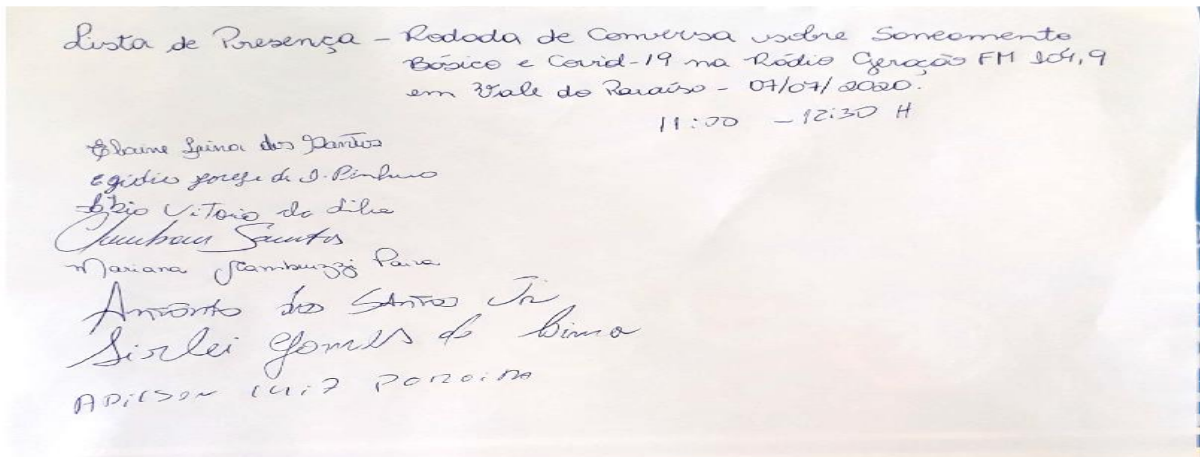 Lista de Presença - Rodada de Conversa sobre Saneamento
Básico e Covid-19 na Rádio Geração FM 104,9
em Vale do Paraíso - 07/07/2020.
11:00 - 12:30 H
Elaine dos Santos
Egidio de S. Pinheiro
Vitorio da Silva
Santos
Mariana Paiva
Antonio dos Santos Jr
Sirlei Gomes de Lima
ADILSON LUIZ PEREIRA